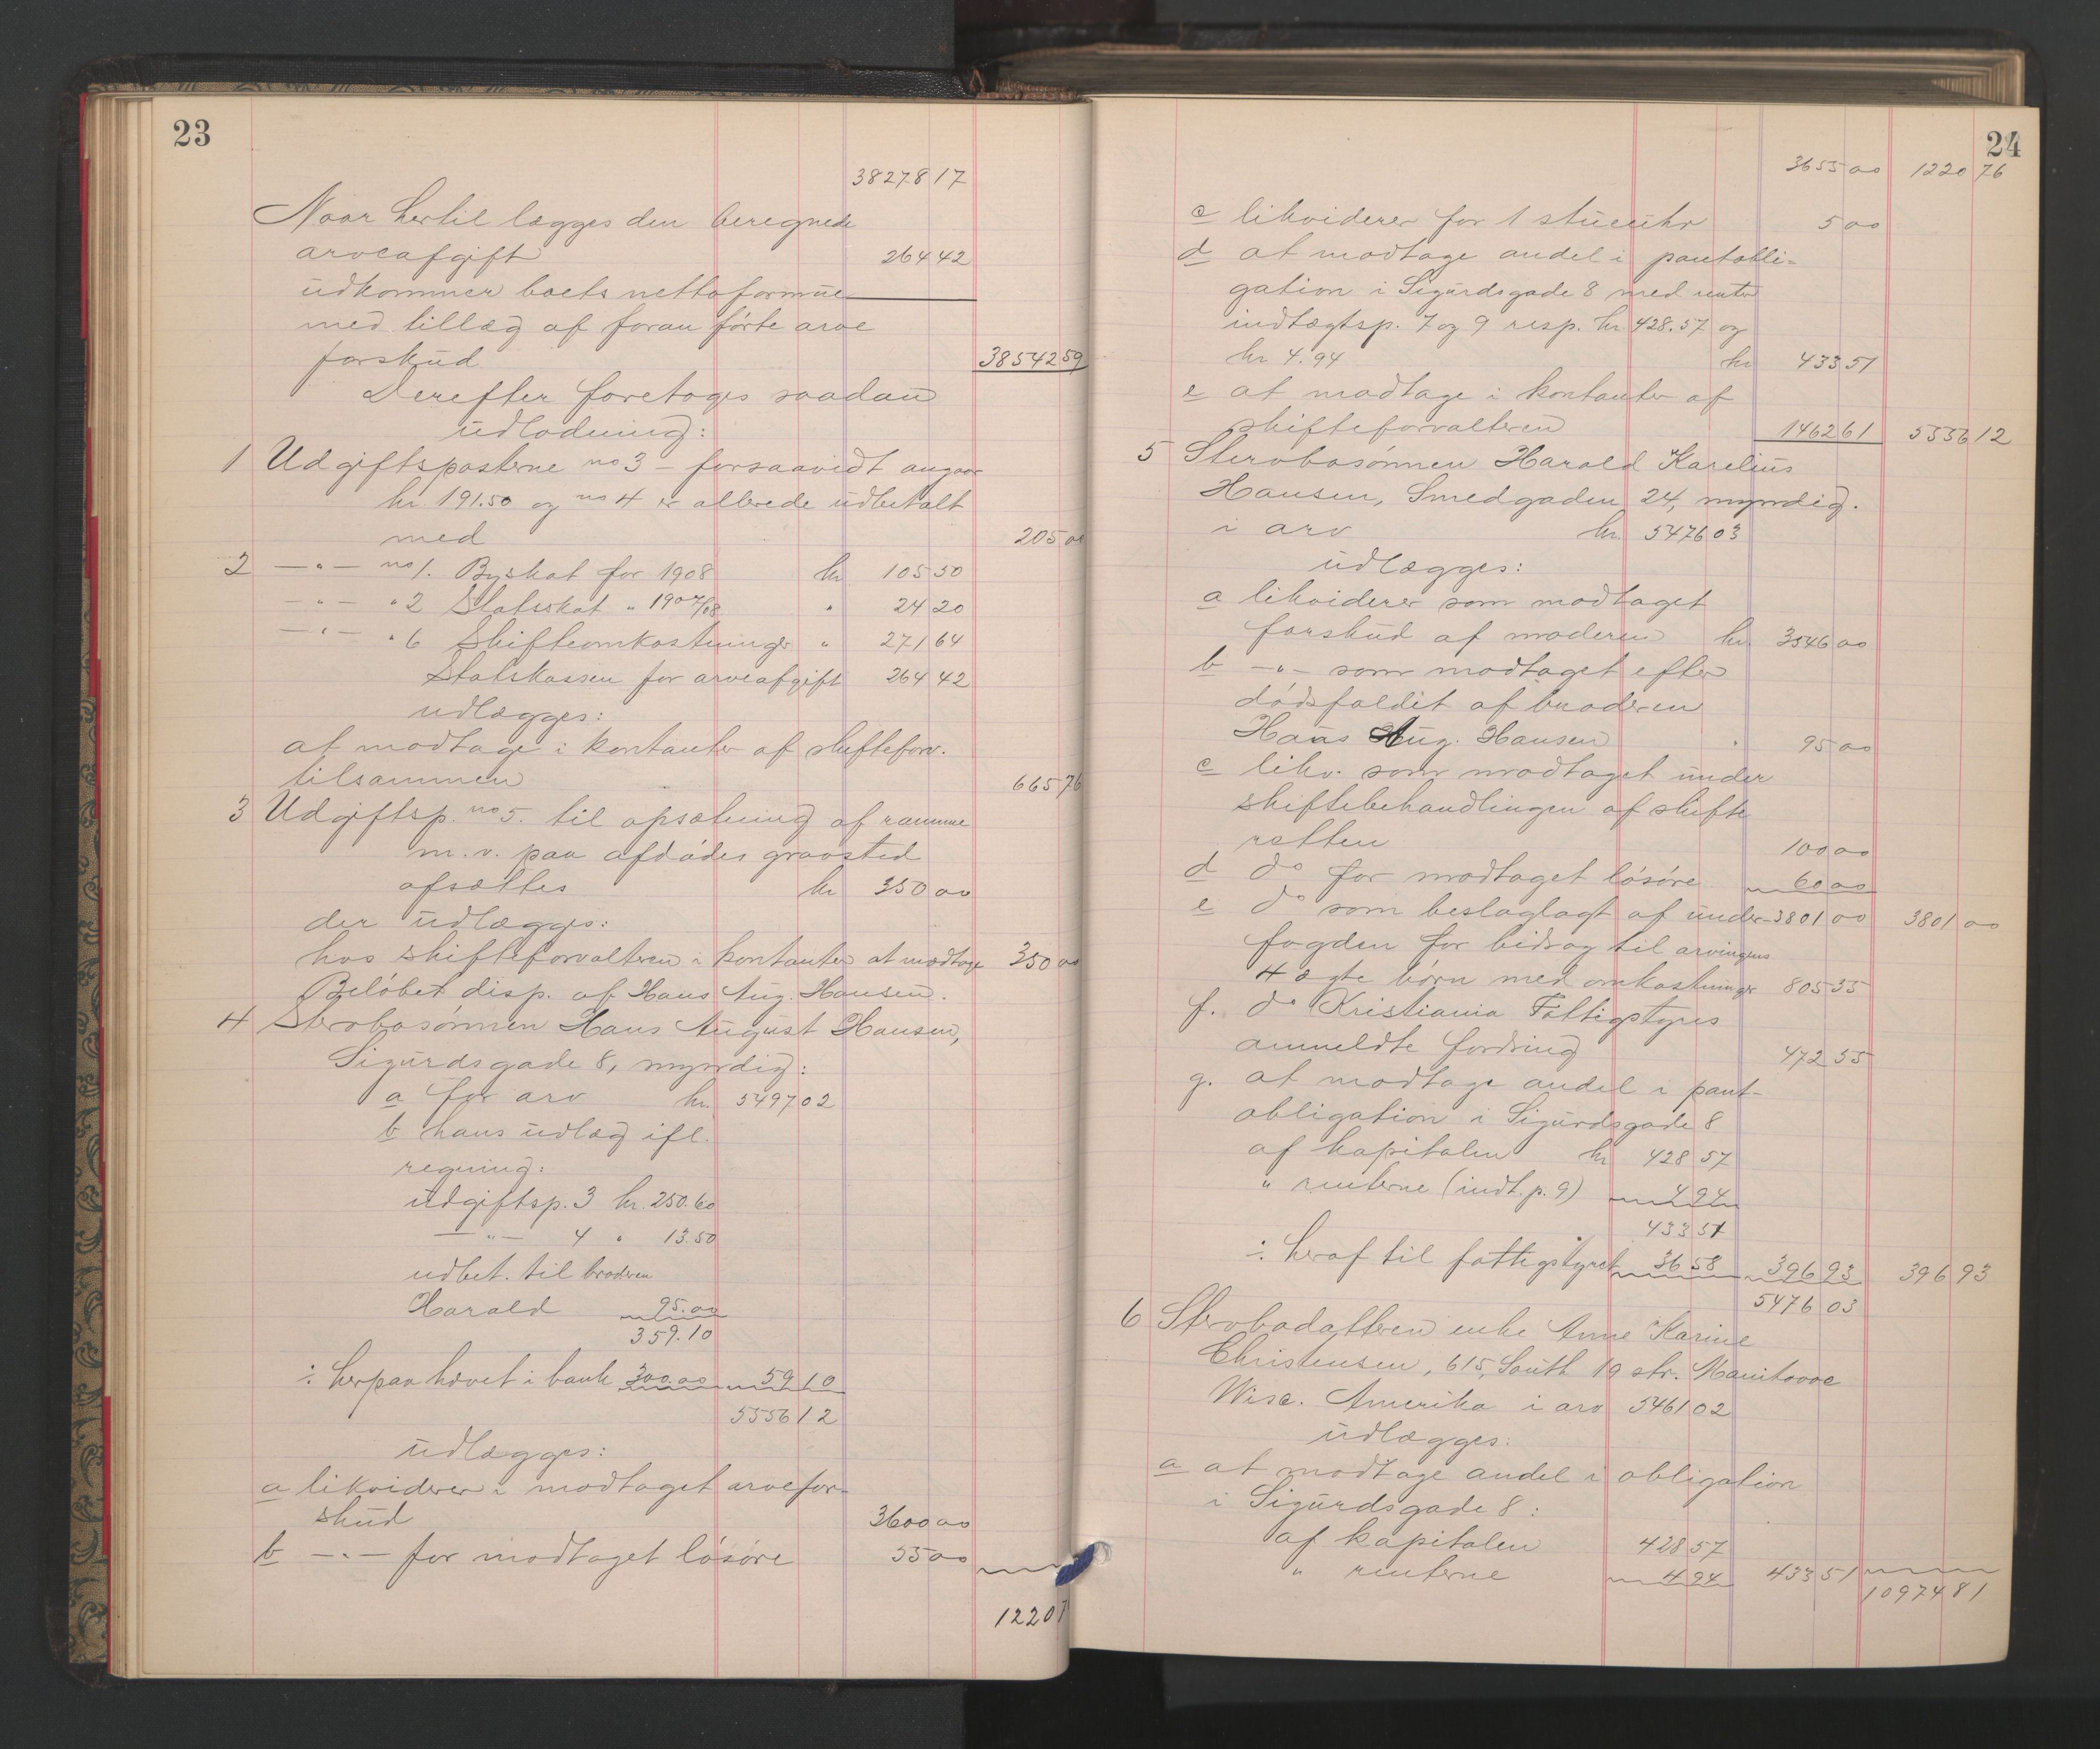 23
38278 17
Naar hertil lægges den beregnede
arveafgift 264 42
udkommer boets nettoformue
med tillæg af foran førte arve
forskud 38542 59
Derefter foretages saadan
udlodning:
1 Udgiftsposterne no 3 – forsaavidt angaar
kr. 191.50 og no 4 er allerede udbetalt
med 205 00
2 — " — no 1. Byskat for 1908 kr 105 50
— " — " 2 Statsskat " 1907/08 " 24 20
— " — " 6 Skifteomkostninger " 271 64
Statskassen for arveafgift 264 42
udlægges:
at modtage i kontanter af skifteforv.
tilsammen 665 76
3 Udgiftsp. no 5. til opsætning af ramme
m. v. paa afdødes gravsted
afsættes kr 350 00
der udlægges:
hos skifteforvalteren i kontanter at modtage 350 00
Beløbet disp. af Hans Aug. Hansen.
4 Stervbosønnen Hans August Hansen,
Sigurdsgade 8, myndig:
a for arv kr. 5497 02
b hans udlæg ifl.
regning:
udgiftsp. 3 kr. 250.60
— " — 4 " 13.50
udbet. til broderen
Harald 95.00
359.10
÷ herpaa hævet i bank 300.00 59 10
5556 12
udlægges:
a likviderer i modtaget arvefor-
skud 3600 00
b — " — for modtaget løsøre 55 00
1220 7
24
3655 00 1220 76
c likviderer for 1 stueuhr 5 00
d at modtage andel i pantobli=
gation i Sigurdsgade 8 med renter
indtægtsp. 7 og 9 resp. kr 428.57 og
kr 4.94 kr 433 51
e at modtage i kontanter af
skifteforvalteren 1462 61 5556 12
5 Stervbosønnen Harald Karelius
Hansen, Smedgaden 24, myndig.
i arv kr. 5476 03
udlægges:
a likviderer som modtaget
forskud af moderen kr 3546 00
b — " — som modtaget efter
dødsfaldet af broderen
Hans Aug. Hansen " 95 00
c likv. som modtaget under
skiftebehandlingen af skifte
retten 100 00
d do for modtaget løsøre 60 00
e do som beslaglagt af under- 3801 00 3801 00
fogden for bidrag til arvingens
4 ægte børn med omkostninger 805 55
f. do Kristiania Fattigstyres
anmeldte fordring 472 55
g. at modtage andel i pant-
obligation i Sigurdsgade 8
af kapitalen kr 428 57
" renterne (indt. p. 9) 4 94
433 51
÷ heraf til fattigstyret 36 58 396 93 396 93
5476 03
6 Stervbodatteren enke Anne Karine
Christensen, 615, South 19 str. Manitovoc
Wisc. Amerika i arv 5461 02
udlægges:
a at modtage andel i obligation
i Sigurdsgade 8:
af kapitalen 428 57
" renterne 4 94 433 51
10974 81